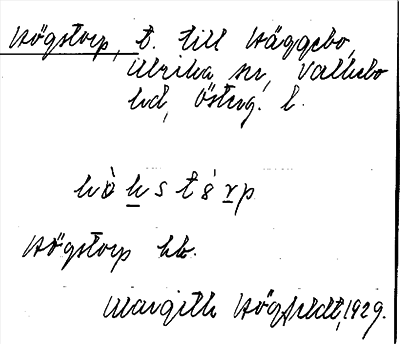 Högstorp, t. till Häggebo,
Ulrika sn, Valkebo
hd, Österg. l.
hö̀kstórp
Högstorp hb.
Margith Högfeldt, 1929.